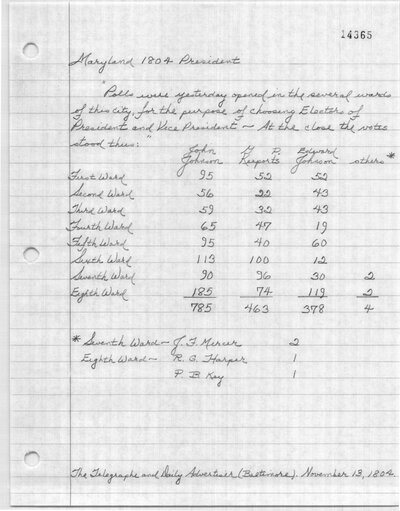 14365
Maryland 1804 President
"Polls were yesterday opened in the several wards
of this city for the purpose of choosing Electors of
President and Vice President" ~ At the close the votes
stood thus:"
John Johnson G. P. Keeports Edward Johnson others*
First Ward 95 52 52
Second Ward 56 22 43
Third Ward 59 32 43
Fourth Ward 65 47 19
Fifth Ward 95 40 60
Sixth Ward 113 100 12
Seventh Ward 90 96 30 2
Eighth Ward 185 74 119 2
785 463 378 4
* Seventh Ward ~ J. F. Mercer 2
Eighth Ward ~ R. G. Harper 1
P. B. Key 1
The Telegraphe and Daily Advertiser (Baltimore). November 13, 1804.